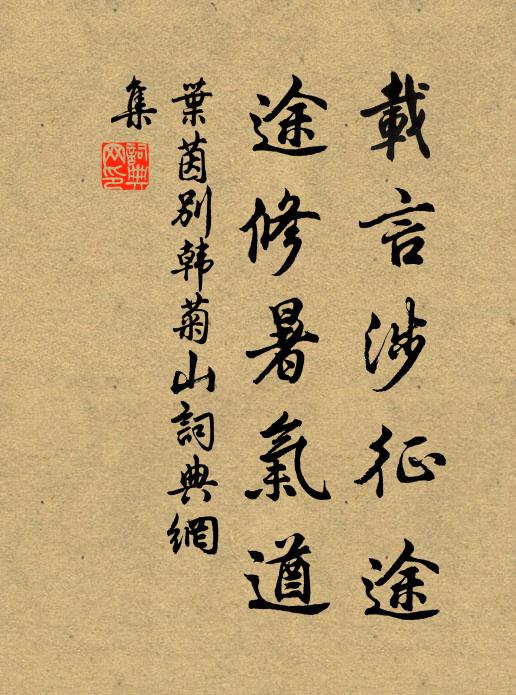 載言涉征途
途修暑氣遒
葉茵別韩菊山詞典網
集
詞典網印